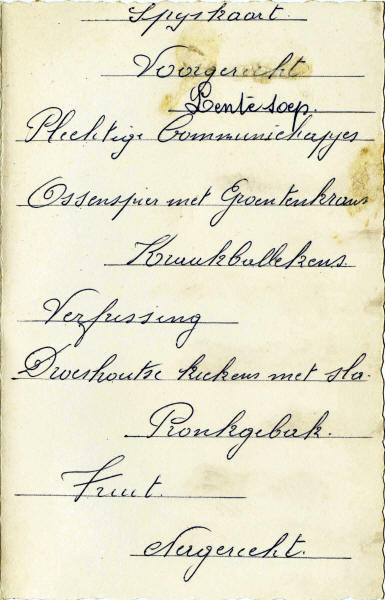 Spyskaart
Voorgerecht
Lente soep.
Plechtige Communichapjes
Ossenspier met Groentenkrans
Kruukballekens.
Verfrissing
Droeshoutse kiekens met sla.
Pronkgebak.
Fruit.
Nagerecht.